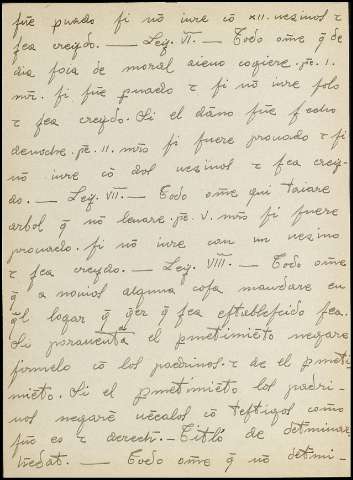 fuẽ puado ſi nõ iure cõ XII. uezinos τ
ſea creydo. — Ley. VI. — Todo ome q̃ de
dia foia de moral aieno cogiere. pe. I.
mr̃. ſi fuẽ puado τ ſi nõ iure ſolo
τ ſea creydo. Si el daño fuẽ fecho
denoche. pe. II. mr̃o ſi fuere prouado τ ſi
nõ iure cõ dos uezinos τ ſea crey-
do. — Ley. VII. — Todo ome qui taiare
arbol q̃ nõ leuare. pe. V. mr̃o ſi fuere
prouado. ſi nõ iure con un uezino
τ ſea creydo. — Ley. VIII. — Todo ome
q̃ a nonos alguna coſa mandare en
q̃l logar q̃ q̃er q̃ ſea eſtableſcido ſea.
Si porauenta el pmetimiẽto negare
firmelo cõ los padrinos. τ de el pmeti
miẽto. Si el pmetimiẽto los padri-
nos negarẽ uẽcalos cõ teſtigos como
fuo es τ derech. — Titlo de detminar
hedat. — Todo ome q̃ nõ detmi-